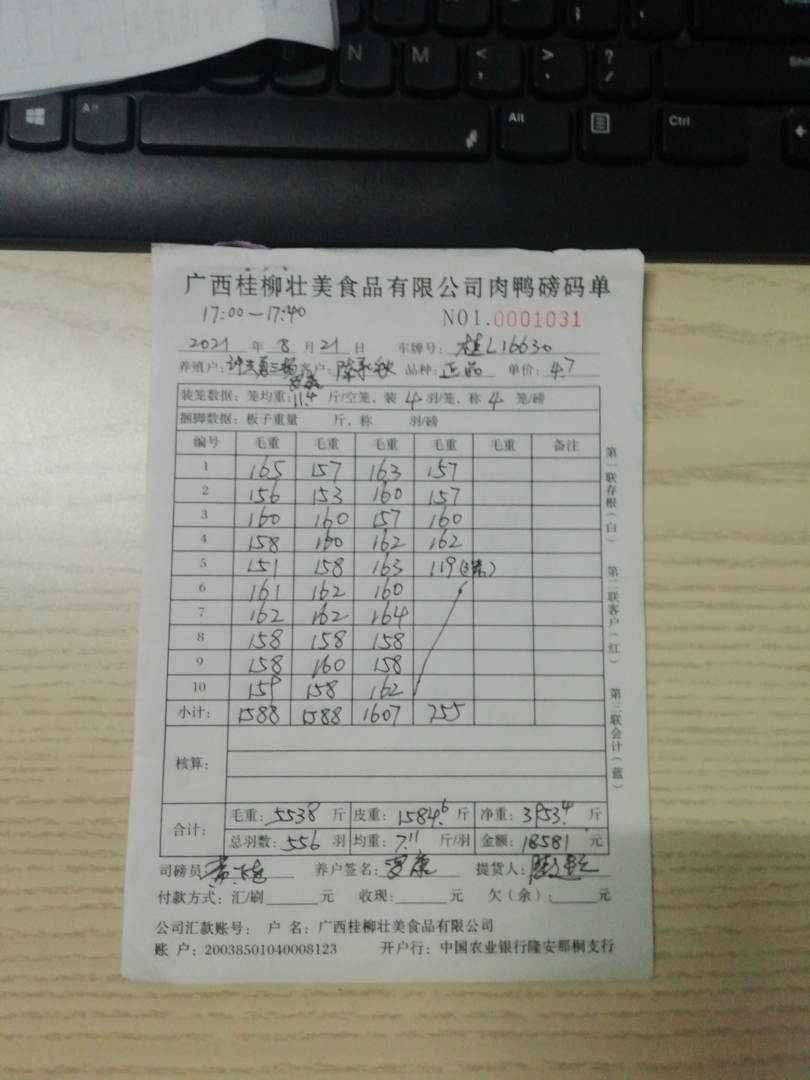 B N M < , > . ? /
Alt Alt Ctrl
广西桂柳壮美食品有限公司肉鸭磅码单
17:00-17:40
NO1.0001031
2021 年 8 月 21 日 车牌号: 桂L16630
养殖户: 客户: 陈承秋 品种: 正品 单价: 4.7
装笼数据: 笼均重: 11.4 斤/空笼、装 4 羽/笼、称 4 笼/磅
捆脚数据: 板子重量 斤、称 羽/磅
编号 毛重 毛重 毛重 毛重 毛重 备注
1 165 157 163 157
2 156 153 160 157
3 160 160 157 160
4 158 160 162 162
5 151 158 163 119
6 161 162 160
7 162 162 164
8 158 158 158
9 158 160 158
10 159 158 162
小计: 1588 1588 1607 755
核算:
合计: 毛重: 5538 斤 皮重: 1584.6 斤 净重: 3953.4 斤
总羽数: 556 羽 均重: 7.11 斤/羽 金额: 18581 元
司磅员: 养户签名: 罗康 提货人:
付款方式: 汇/刷 元 收现: 元 欠(余): 元
公司汇款账号: 户 名: 广西桂柳壮美食品有限公司
账 户: 20038501040008123 开户行: 中国农业银行隆安那桐支行
第一联存根(白)
第二联客户(红)
第三联会计(蓝)